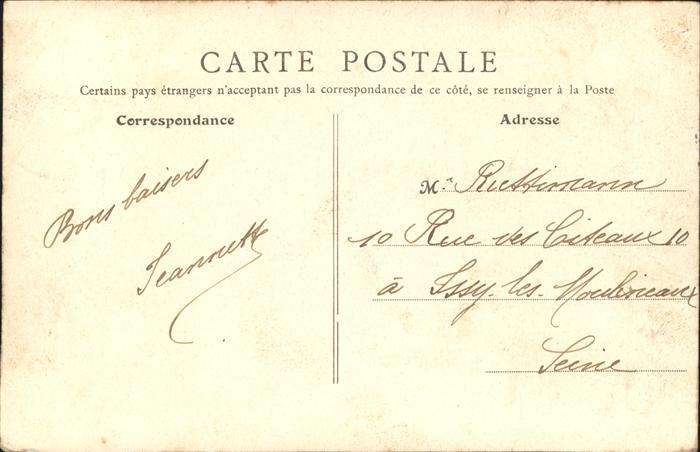 CARTE POSTALE
Certains pays étrangers n'acceptant pas la correspondance de ce côté, se renseigner à la Poste
Correspondance
Bons baisers
Jeannette
Adresse
Mr Ruttimann
10 Rue des Citeaux 10
à Issy-les-Moulineaux
Seine